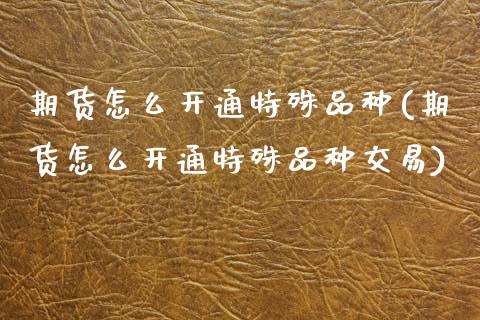 期货怎么开通特殊品种(期
货怎么开通特殊品种交易)